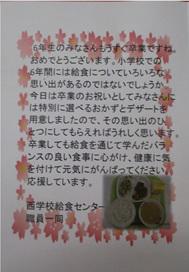 6年生のみなさんもうすぐ卒業ですね。
おめでとうございます。小学校での
6年間には給食についていろいろな
思い出があるのではないでしょうか。
今日は卒業のお祝いとしてみなさんに
は特別に選べるおかずとデザートを
用意しましたので、その思い出のひ
とつにしてもらえればうれしく思います。
卒業しても給食を通して学んだバラ
ンスの良い食事に心がけ、健康に気
を付けて元気にがんばってください。
応援しています。
西学校給食センター
職員一同